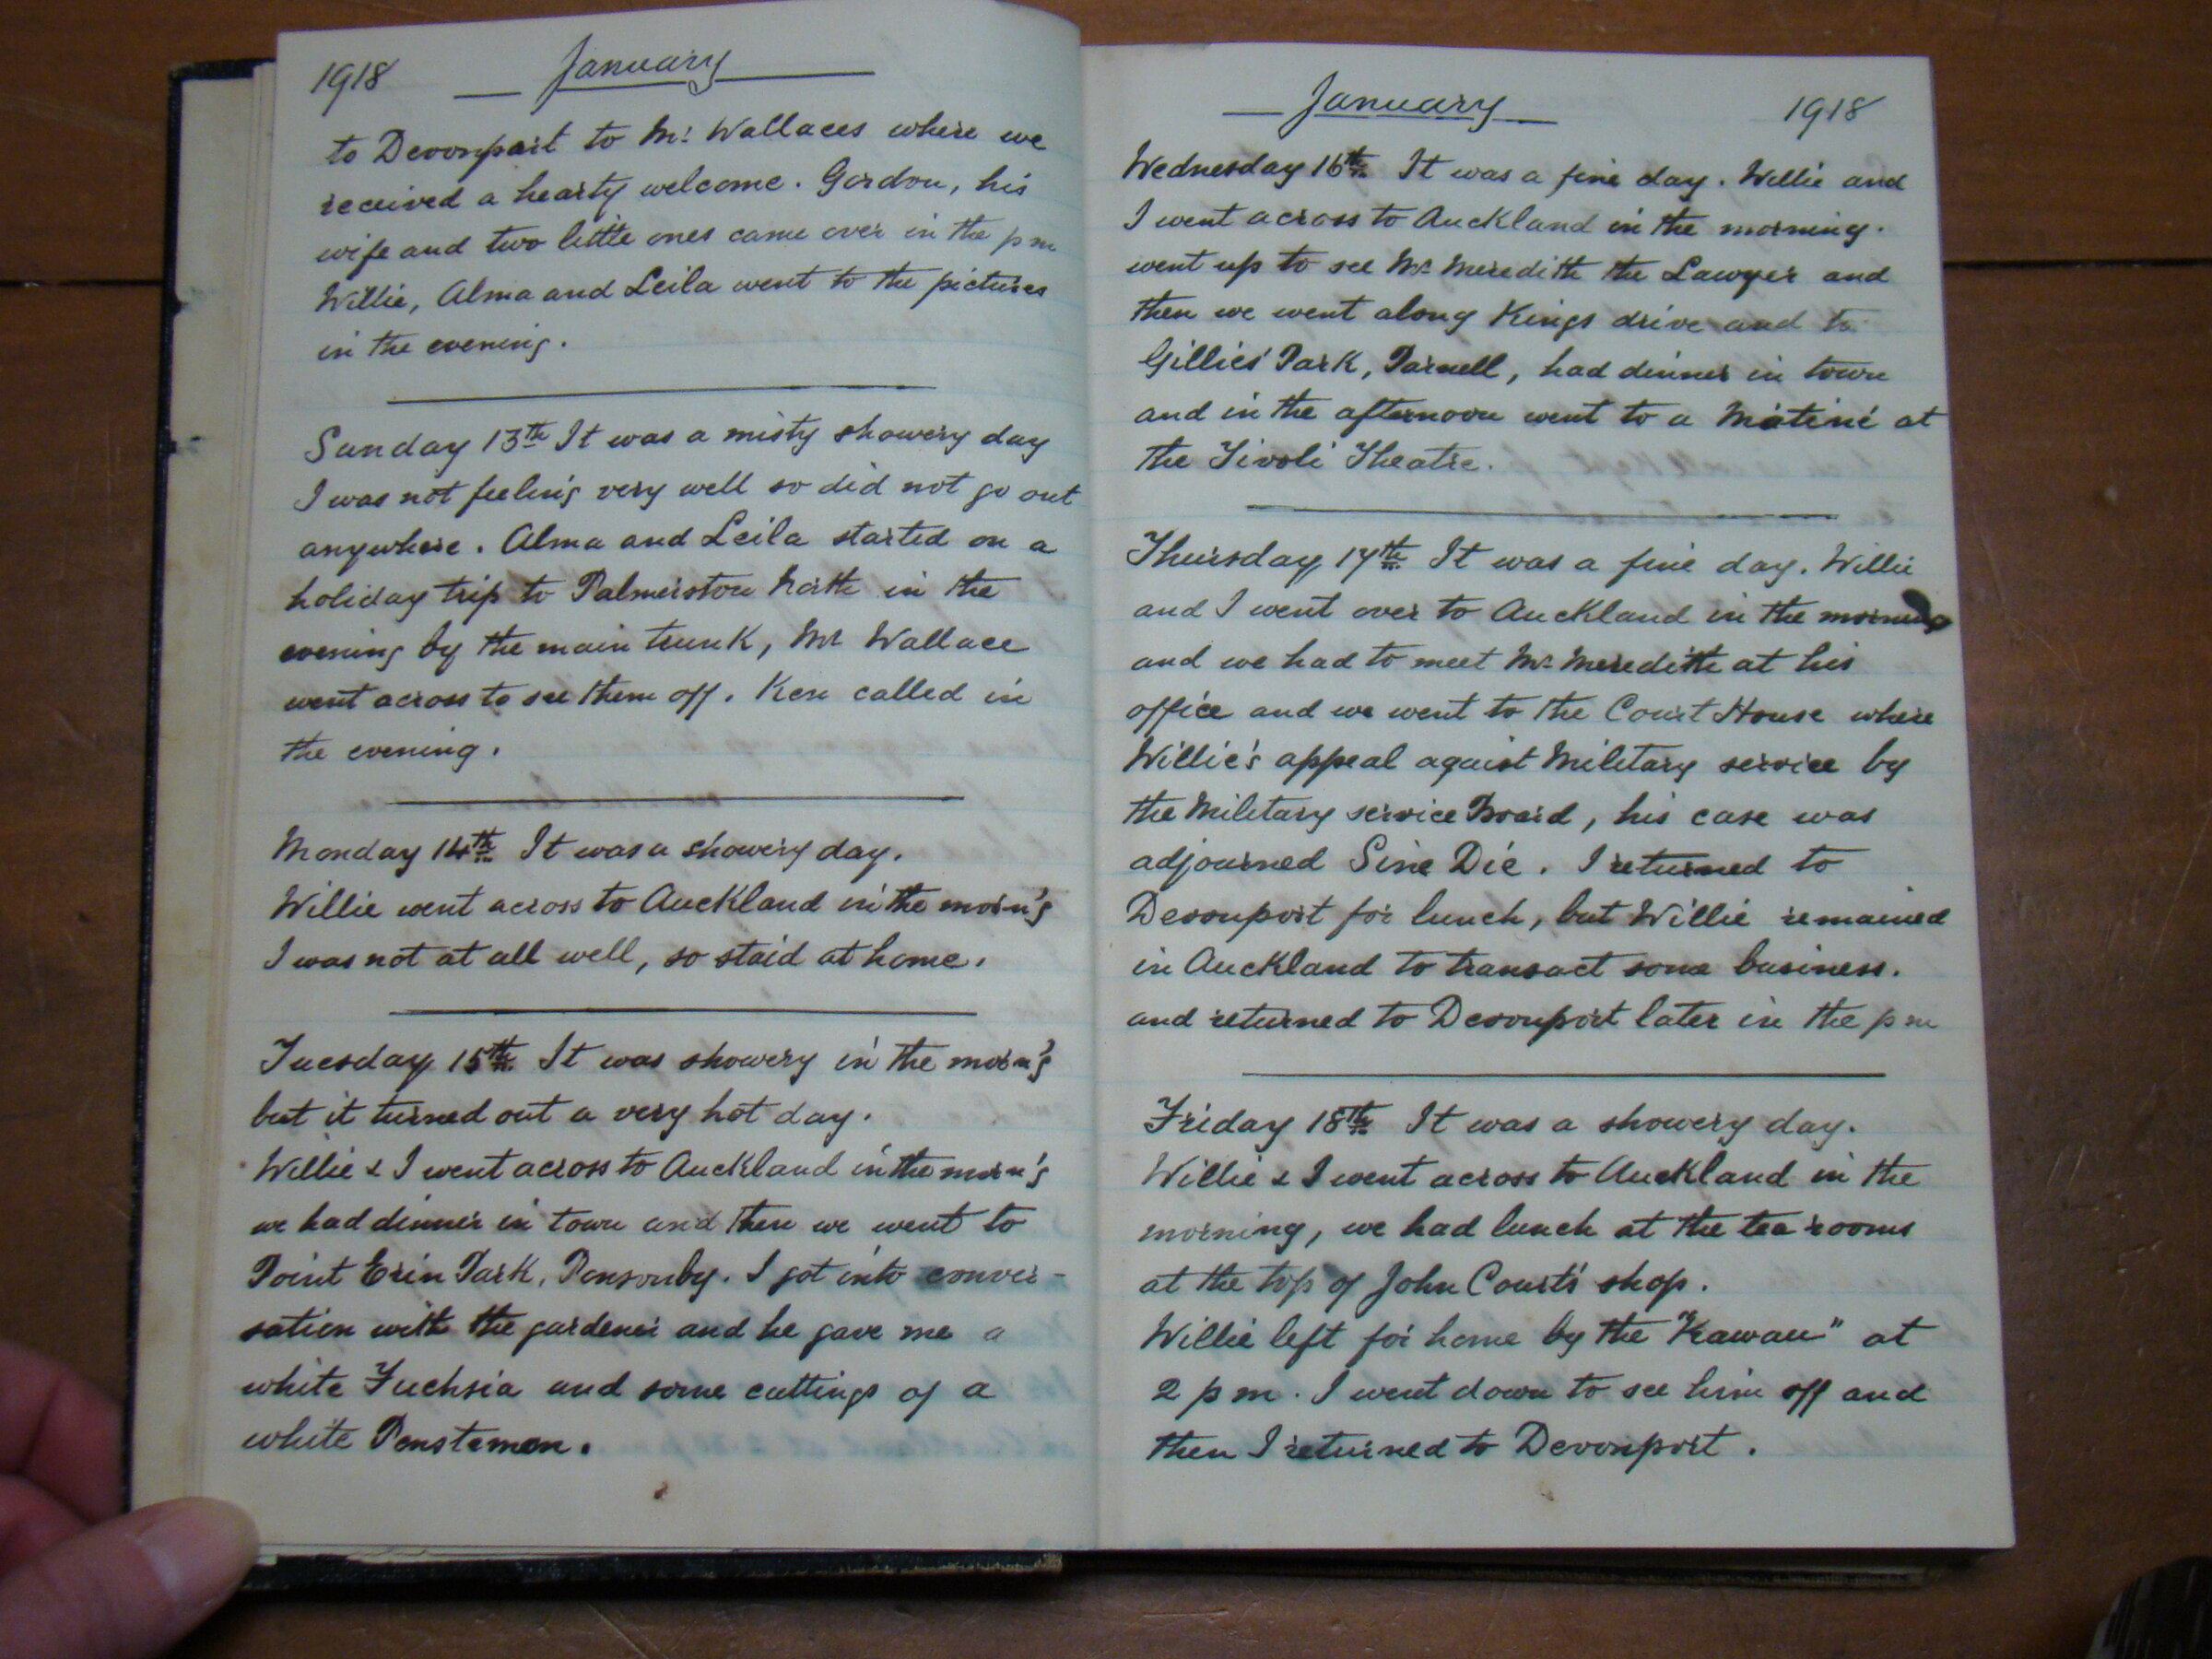 1918 January
to Devonport to Mr. Wallaces where we
received a hearty welcome. Gordon, his
wife and two little ones came over in the pm
Willie, Alma and Leila went to the pictures
in the evening.
Sunday 13th It was a misty showery day
I was not feeling very well so did not go out
anywhere. Alma and Leila started on a
holiday trip to Palmerston North in the
evening by the main trunk, Mr Wallace
went across to see them off. Ken called in
the evening.
Monday 14th It was a showery day.
Willie went across to Auckland in the morn'g
I was not at all well, so staid at home.
Tuesday 15th It was showery in the morn'g
but it turned out a very hot day.
Willie & I went across to Auckland in the morn'g
we had dinner in town and then we went to
Point Erin Park, Ponsonby. I got into conver-
sation with the gardener and he gave me a
white Fuchsia and some cuttings of a
white Penstemon.
January 1918
Wednesday 16th It was a fine day. Willie and
I went across to Auckland in the morning.
went up to see Mr Meredith the Lawyer and
then we went along Kings drive and to
Gillies' Park, Parnell, had dinner in town
and in the afternoon went to a Matiné at
the Tivoli Theatre.
Thursday 17th It was a fine day. Willie
and I went over to Auckland in the morning
and we had to meet Mr Meredith at his
office and we went to the Court House where
Willie's appeal agaist Military service by
the Military service Board, his case was
adjourned Sine Die. I returned to
Devonport for lunch, but Willie remained
in Auckland to transact some business.
and returned to Devonport later in the pm
Friday 18th It was a showery day.
Willie & I went across to Auckland in the
morning, we had lunch at the tea rooms
at the top of John Courts' shop.
Willie left for home by the "Kawau" at
2 pm. I went down to see him off and
then I returned to Devonport.